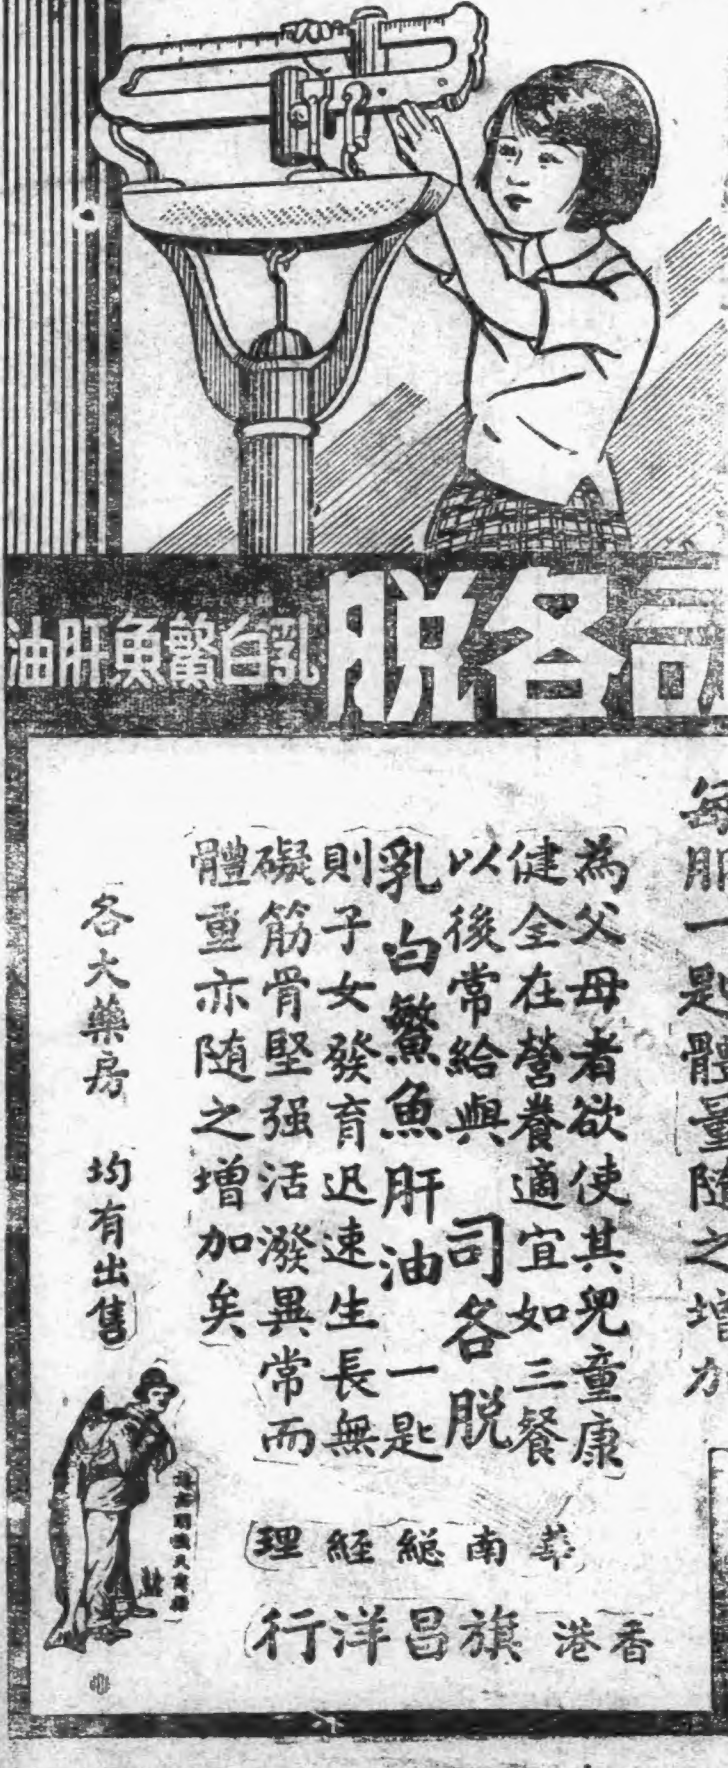 各脫
乳白鰵魚肝油
每服一匙體量隨之增加
為父母者欲使其兒童康
健全在營養適宜如三餐
以後常給與司各脫
乳白鰵魚肝油一匙
則子女發育迅速生長無
礙筋骨堅强活潑異常而
體重亦随之增加矣
各大藥房 均有出售
華南総経理
香港 旗昌洋行